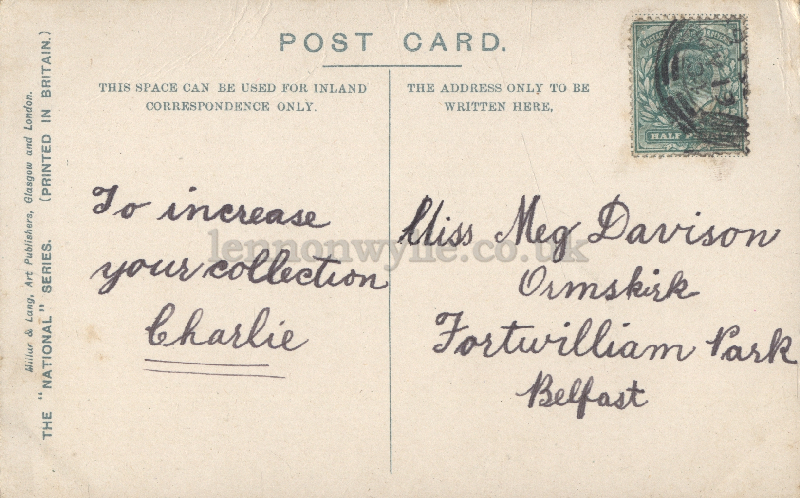 POST CARD.
THIS SPACE CAN BE USED FOR INLAND
CORRESPONDENCE ONLY.
THE ADDRESS ONLY TO BE
WRITTEN HERE,
HALF
To increase
your collection
Charlie
Miss Meg Davison
Ormskirk
Fortwilliam Park
Belfast
lennonwylie.co.uk
Millar & Lang, Art Publishers, Glasgow and London.
THE "NATIONAL" SERIES. (PRINTED IN BRITAIN.)